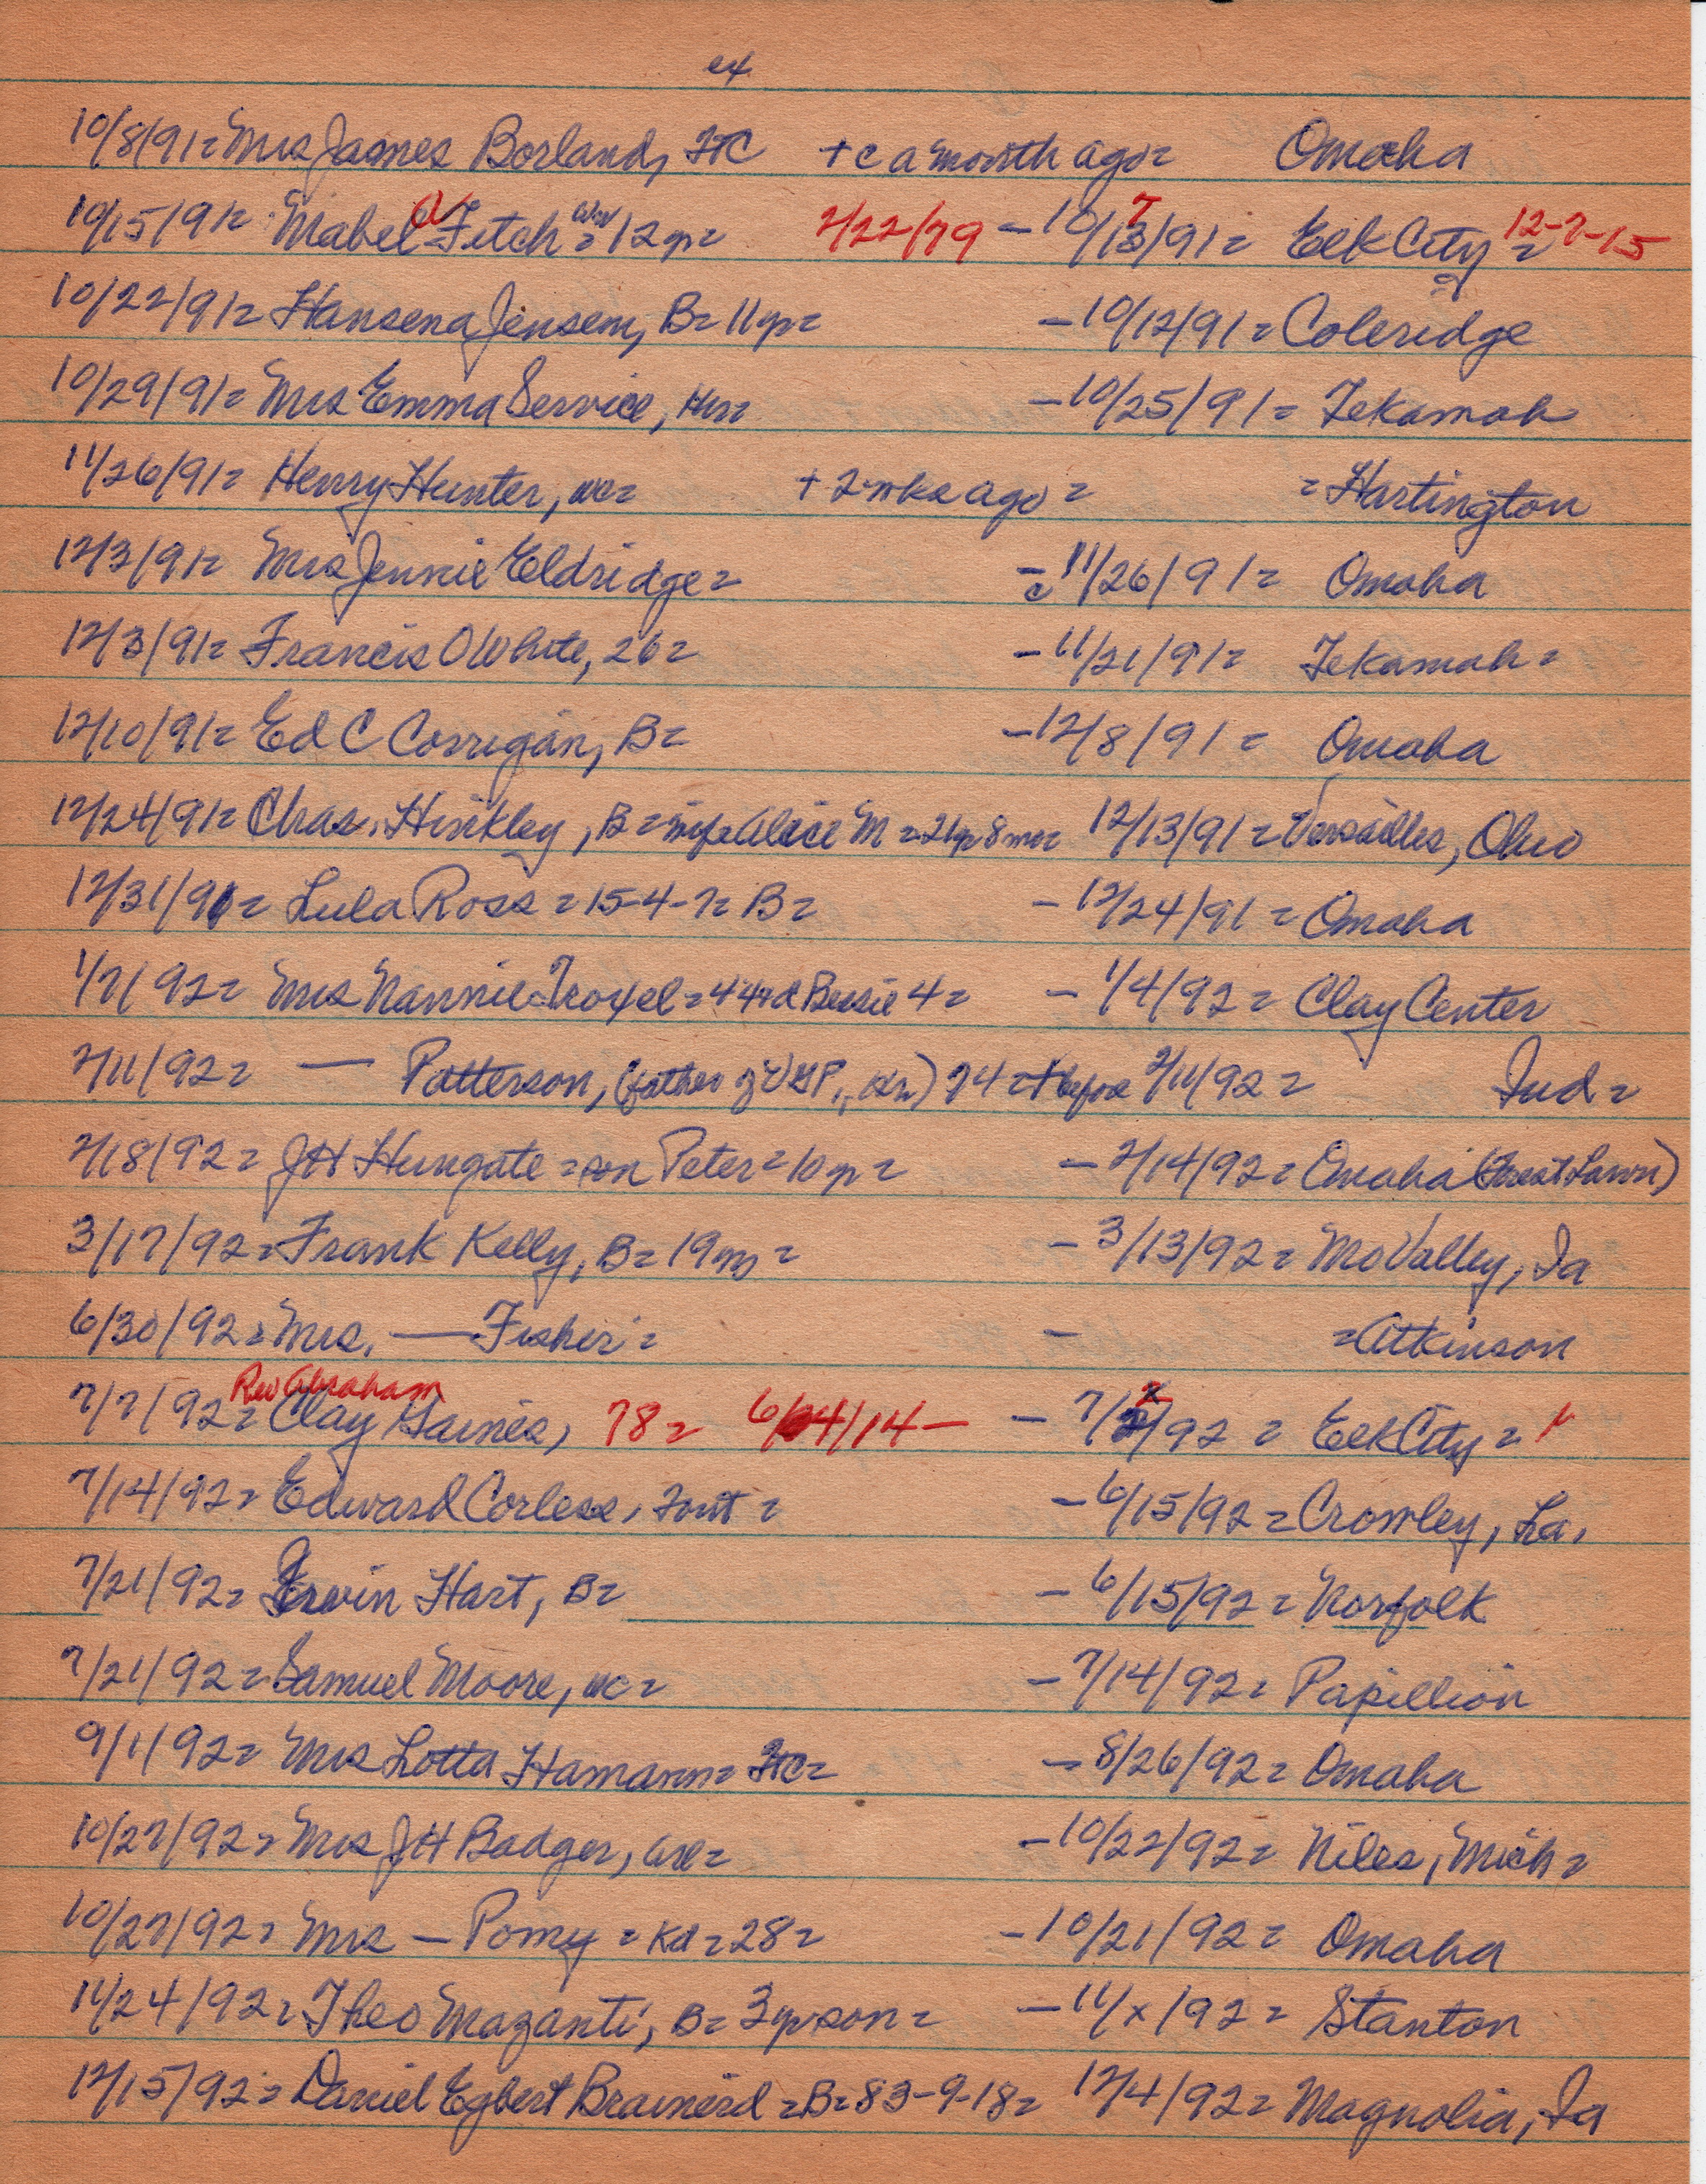 ex
10/8/91= Mrs James Borland, FtC +c a month ago= Omaha
10/15/91= Mabel V Fitch = 12yr= 2/22/79 - 10/13/91= 7 Elk City = 12-7-15
10/22/91= Hansena Jensen, B= 11yr= -10/12/91= Coleridge
10/29/91= Mrs Emma Service, Hr= -10/25/91= Tekamah
11/26/91= Henry Hunter, wc= +2 wks ago= = Hartington
12/3/91= Mrs Jennie Eldridge= - c 11/26/91= Omaha
12/3/91= Francis O White, 26= -11/21/91= Tekamah=
12/10/91= Ed C Corrigan, B= -12/8/91= Omaha
12/24/91= Chas. Hinkley, B= wife Alice M = 21yr 8mo= 12/13/91= Versailles, Ohio
12/31/91= Lula Ross = 15-4-7= B= -12/24/91= Omaha
1/7/92= Mrs Nannie Troxel = 44+d Bessie 4= -1/4/92= Clay Center
2/11/92= — Patterson, (father of P., Kn) 74 = + before 2/11/92= Ind=
2/18/92= JH Hungate = son Peter = 10yr= -2/14/92= Omaha (Forest Lawn)
3/17/92= Frank Kelly, B= 19m= -3/13/92= Mo Valley, Ia
6/30/92= Mrs. — Fisher= - = Atkinson
7/7/92= Rev Abraham Clay Gaines, 78= 6/4/14- - 7/2/92= Elk City= "
7/14/92= Edward Corless, Font= -6/15/92= Crowley, La.
7/21/92= Ervin Hart, B= -6/15/92= Norfolk
7/21/92= Samuel Moore, wc= -7/14/92= Papillion
9/1/92= Mrs Lotta Hamann= FtC= -8/26/92= Omaha
10/27/92= Mrs JH Badger, Arl= -10/22/92= Niles, Mich=
10/27/92= Mrs — Pomy = Kd = 28= -10/21/92= Omaha
11/24/92= Theo Mazanti, B= 3yr son= -11/x/92= Stanton
12/15/92= Daniel Egbert Brainerd = B= 83-9-18= 12/4/92= Magnolia, Ia